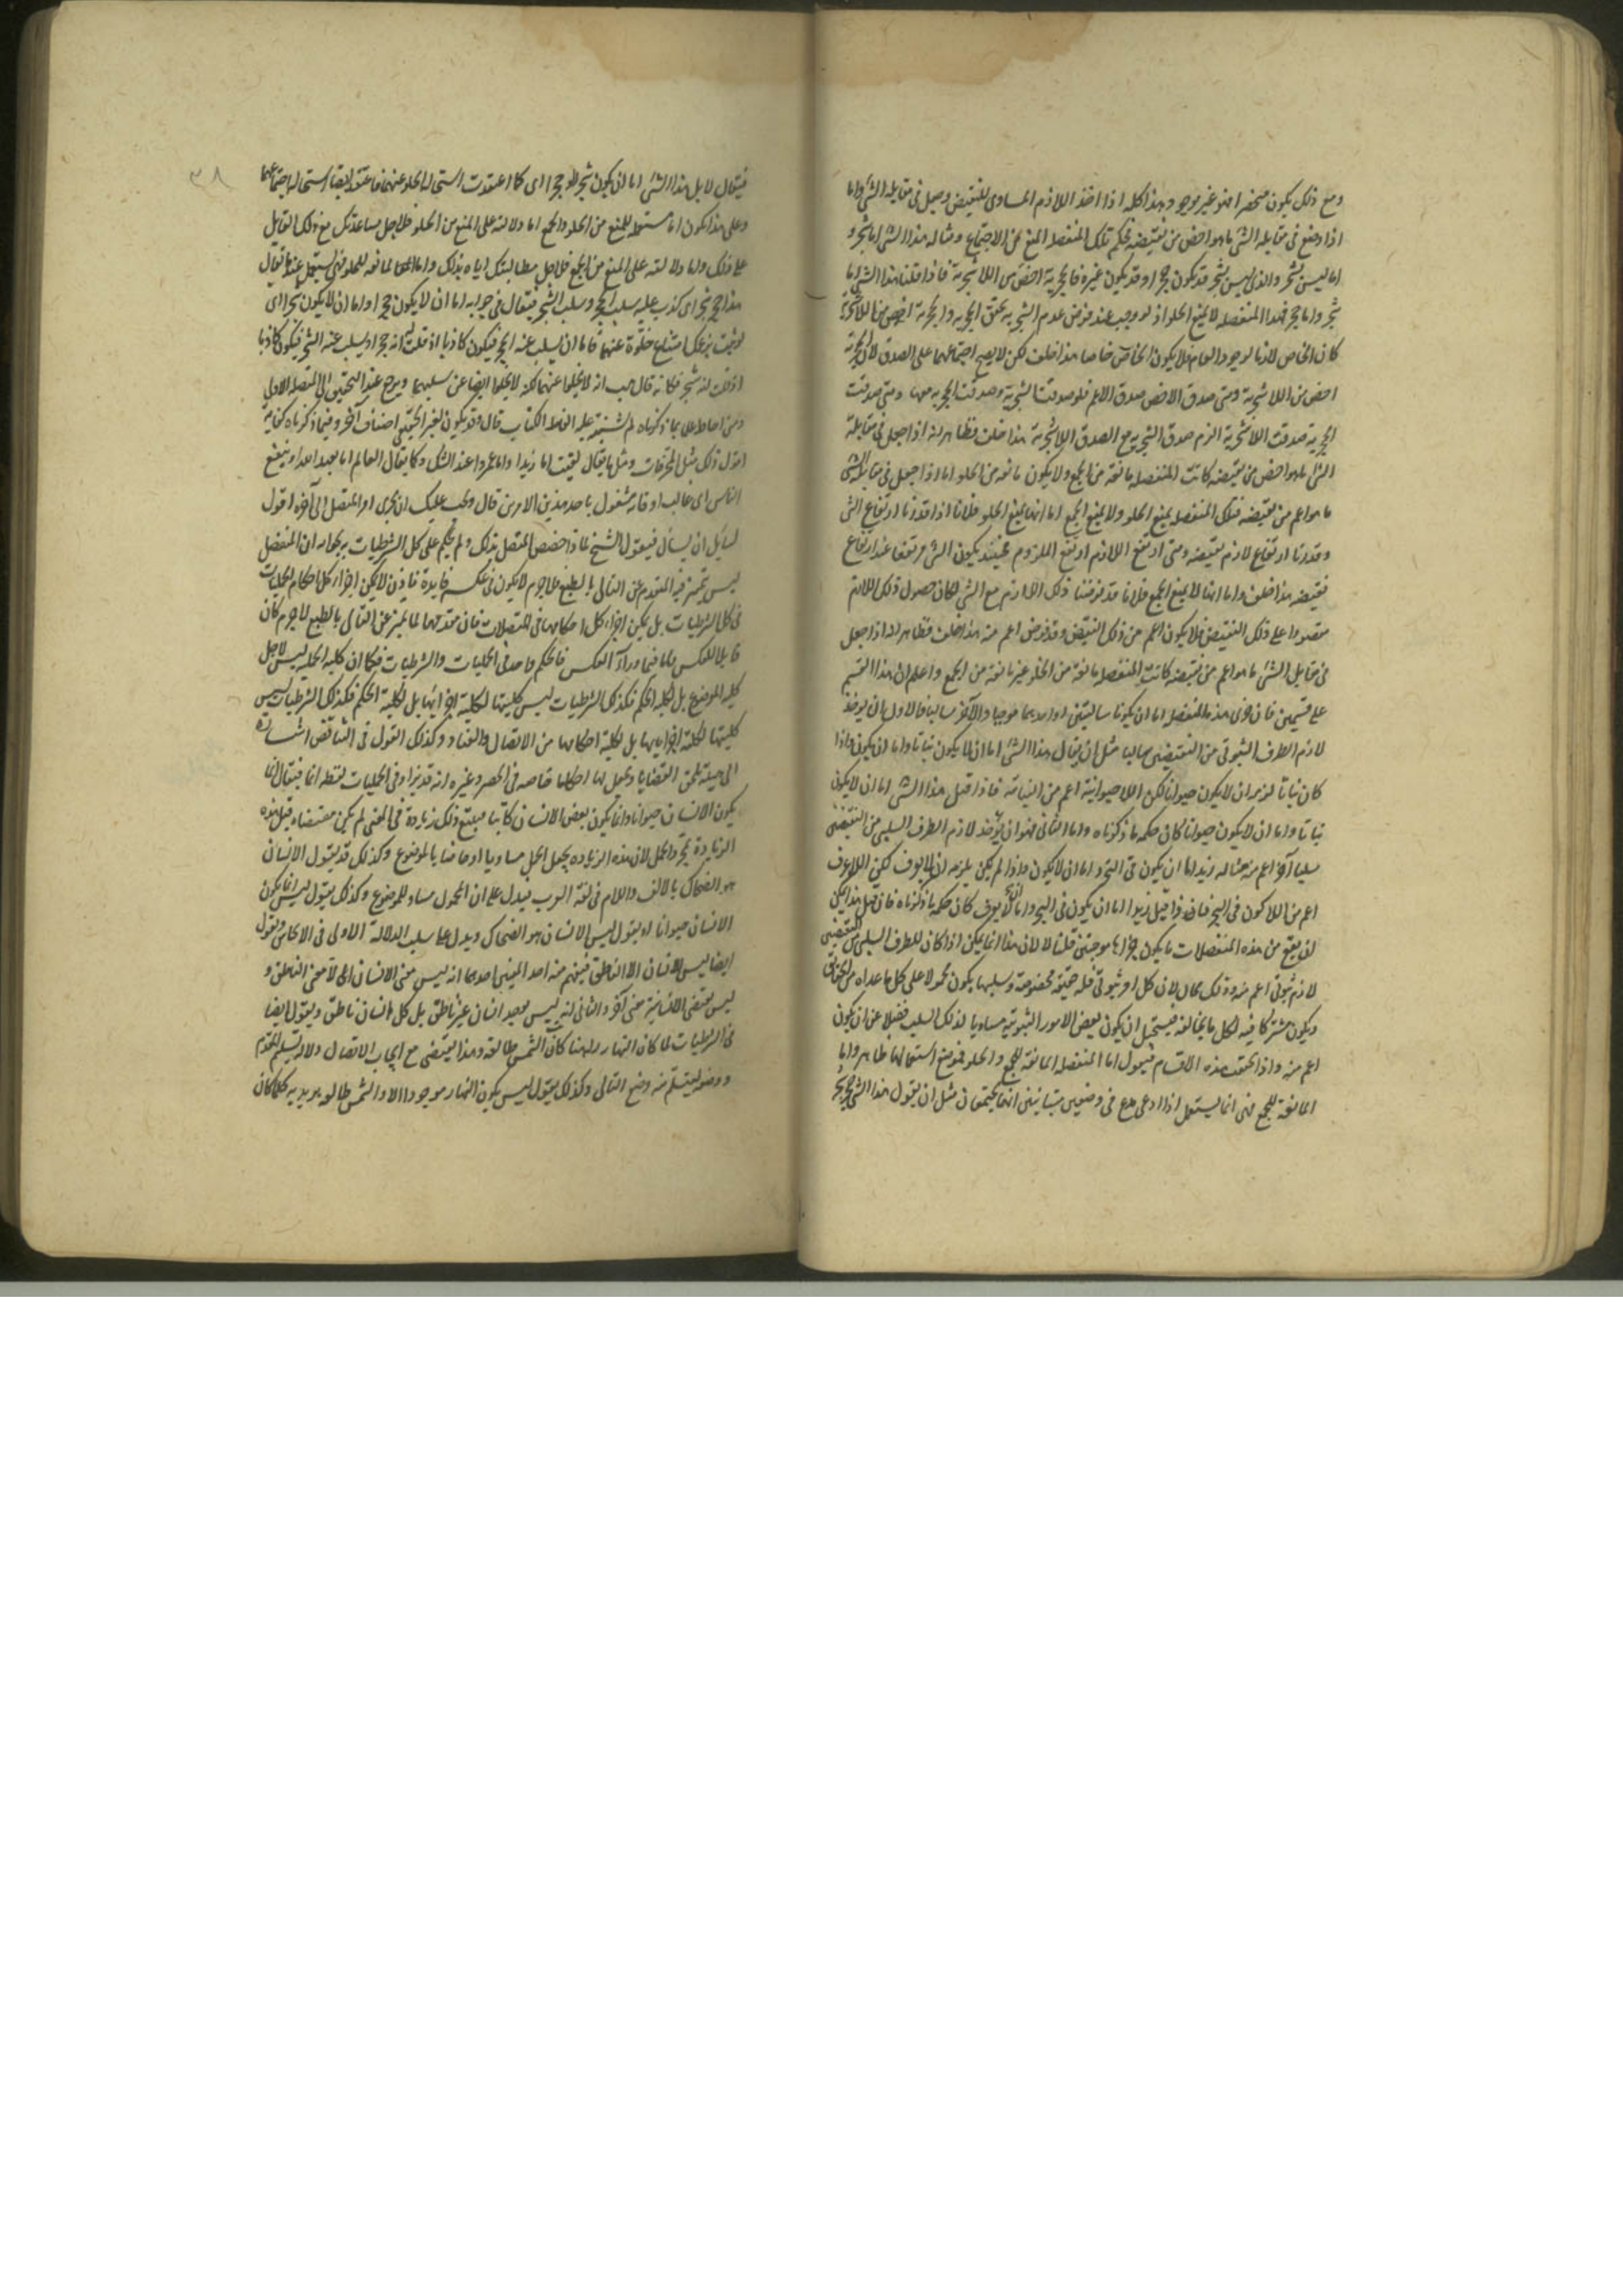 ومع ذلك يكون منحصرا فهو غير موجود وهذا كله اذا اخذ اللازم المساوى للنقيض وجعل فى مقابلة الشئ واما
اذا وضع فى مقابلة الشئ ما هو اخص من نقيضه فحكم تلك المنفصلة المنع من الاجتماع ومثاله هذا الشئ اما شجر و
اما ليس بشجر والذى ليس بشجر قد يكون حجرا وقد يكون غيره فالحجرية اخص من اللاشجرية فاذا قلنا هذا الشئ اما
شجر واما حجر فهذا المنفصلة لا يمنع الخلو اذ لو وجب عند فرض عدم الشجرية تحقق الحجرية والحجرية اخص من اللاشجرية
كان الخاص لازما لوجود العام فلا يكون الخاص خاصا هذا خلف لكن لا يصح اجتماعهما على الصدق لان الحجرية
اخص من اللاشجرية ومتى صدق الاخص صدق الاعم فلو صدقت الشجرية وصدقت الحجرية معها ومتى صدقت
الحجرية صدقت اللاشجرية الزم صدق الشجرية مع الصدق اللاشجرية هذا خلف فظاهر انه اذا جعل فى مقابلة
الشئ ما هو اخص من نقيضه كانت المنفصلة مانعة من الجمع ولا يكون مانعة من الخلو اما اذا جعل فى مقابلة الشئ
ما هو اعم من نقيضه فتلك المنفصلة يمنع الخلو ولا يمنع الجمع اما انها يمنع الخلو فلانا اذا قدرنا ارتفاع الشئ
وقدرنا ارتفاع لازم نقيضه ومتى ارتفع اللازم ارتفع الملزوم فحينئذ يكون الشئ مرتفعا عند ارتفاع
نقيضه هذا خلف واما انها لا يمنع الجمع فلانا قد فرضنا ذلك اللازم مع الشئ لكان حصول ذلك اللازم
مقصورا على ذلك النقيض فلا يكون اعم من ذلك النقيض وقد فرض اعم منه هذا خلف فظاهر انه اذا جعل
فى مقابل الشئ ما هو اعم من نقيضه كانت المنفصلة مانعة من الخلو غير مانعة من الجمع واعلم ان هذا القسم
على قسمين فان جزئى هذه المنفصلة اما ان يكونا سالبتين او احديهما موجبا والآخر سالبا فالاول ان يوخذ
لازم الطرف الثبوتى من النقيضين سالبا مثل ان يقال هذا الشئ اما ان لا يكون نباتا واما ان يكون واذا
كان نباتا لزم ان لا يكون حيوانا لكن اللاحيوانية اعم من النباتية فاذا قيل هذا الشئ اما ان لا يكون
نباتا واما ان لا يكون حيوانا كان حكمه ما ذكرناه واما الثانى فهو ان يؤخذ لازم الطرف السلبى من النقيضين
سلبا آخر اعم منه مثاله زيد اما ان يكون فى البحر واما ان لا يكون واذا لم يكن يلزمه ان لا يغرق لكن اللاغرق
اعم من اللاكون فى البحر فاذا قيل زيد اما ان يكون فى البحر واما ان لا يغرق كان حكمه ما ذكرناه فان قيل هذا يمكن
ان يقع من هذه المنفصلات ما يكون جزءاها موجبتين قلنا لا لان هذا انما يمكن اذا كان للطرف السلبى من النقيضين
لازم ثبوتى اعم منه وذلك محال لان كل امر ثبوتى فله حقيقة مخصوصة وسلبها يكون محمولا على كل ما عداه من الحقائق
ويكون مشتركا فيه لكل ما يخالفه فيستحيل ان يكون بعض الامور الثبوتية مساويا لذلك السلب فضلا عن ان يكون
اعم منه واذا تحققت هذه الاقسام فيقول اما المنفصلة المانعة للجمع والخلو فموضع استعمالها ظاهر واما
المانعة للجمع فهى انما يستعمل اذا ادعى مدع فى وضعين متباينين انهما يجتمعان مثل ان يقول هذا الشئ حجر شجر
٣٨
فيقال لا بل هذا الشئ اما ان يكون شجرا او حجرا اى كما اعتقدت استحالة الخلو عنهما فاعتقد ايضا استحالة اجتماعهما
وعلى هذا يكون اما مستعملا للمنع من الخلو والجمع اما دلالته على المنع من الخلو فلاجل مساعدتك مع ذلك القايل
على ذلك واما دلالته على المنع من الجمع فلاجل مطالبتك اياه بذلك واما المانعة للخلو فهى يستعمل عند ما يقال
هذا حجر شجر اى كذب عليه سلب الحجر وسلب الشجر فيقال فى جوابه اما ان لا يكون حجرا واما ان لا يكون شجرا اى
لو ثبت بزعمك امتناع خلوه عنهما فاما ان يسلب عنه الحجر فيكون كاذبا اذ قلت انه حجر او يسلب عنه الشجر فيكون كاذبا
اذ قلت انه شجر فكانه قال هب انه لا يخلوا عنهما لكنه لا يخلوا ايضا عن سلبهما ويرجع عند التحقيق الى المتصلة الاولى
ومن احاط علما بما ذكرناه لم يشتبه عليه الفاظ الكتاب قال وقد يكون لغير الحقيقى اصناف آخر وفيما ذكرناه كفاية
اقول ذلك مثل المحرفات ومثل ما يقال لقيت اما زيدا واما عمروا عند الشك وكما يقال العالم اما يعبد الله او ينفع
الناس اى غالب اوقاته مشغول باحد هذين الامرين قال ويجب عليك ان تجرى امر المتصل الى آخره اقول
لسائل ان يسال فيقول الشيخ لماذا خصص المتصل بذلك ولم يحكم على كل الشرطيات به جوابه ان المنفصل
ليس يتميز فيه المقدم عن التالى بالطبع فلا جرم لا يكون فى عكسه فايدة فاذن لا يمكن اجراء كل احكام الحمليات
فى كل الشرطيات بل يمكن اجراء كل احكامها فى المتصلات فان مقدمها لما تميز عن التالى بالطبع لا جرم كان
قابلا للعكس واما فيما وراء العكس فالحكم واحد فى الحمليات والشرطيات فكما ان كلية الحملية ليس لاجل
كلية الموضوع بل لكلية الحكم فكذلك الشرطيات ليس كليتها لكلية اجزائها بل لكلية الحكم فكذلك الشرطيات ليس
كليتها لكلية اجزايها بل لكلية احكامها من الاتصال والعناد وكذلك القول فى التناقض اشارة
الى هيئة تلحق القضايا وتجعل لها احكاما خاصة فى الحصر وغيره انه قد يزاد فى الحمليات لفظه انما فيقال انما
يكون الانسان حيوانا وانما يكون بعض الانسان كاتبا فيتبع ذلك زيادة فى المعنى لم يكن مقتضاه قبل هذه
الزيادة بمجرد الحمل لان هذه الزيادة يجعل الحمل مساويا او خاصا بالموضوع وكذلك قد يقول الانسان
هو الضحاك بالالف واللام فى لغة العرب فيدل على ان المحمول مساو للموضوع وكذلك يقول ليس انما يكون
الانسان حيوانا او يقول ليس الانسان هو الضحاك ويدل على سلب الدلالة الاولى فى الايجابين ويقول
ايضا ليس الانسان الا الناطق فيفهم منه احد المعنيين احدهما انه ليس معنى الانسان الا معنى الناطق و
ليس يقتضى الانسانية معنى آخر والثانى انه ليس يوجد انسان غير ناطق بل كل انسان ناطق ويقول ايضا
فى الشرطيات لما كان النهار راهنا كان الشمس طالعة وهذا يقتضى مع ايجاب الاتصال دلالة تسليم المقدم
ووضعه ليتسلم منه وضع التالى وكذلك يقول ليس يكون النهار موجودا الا والشمس طالعة يريد به كلما كان